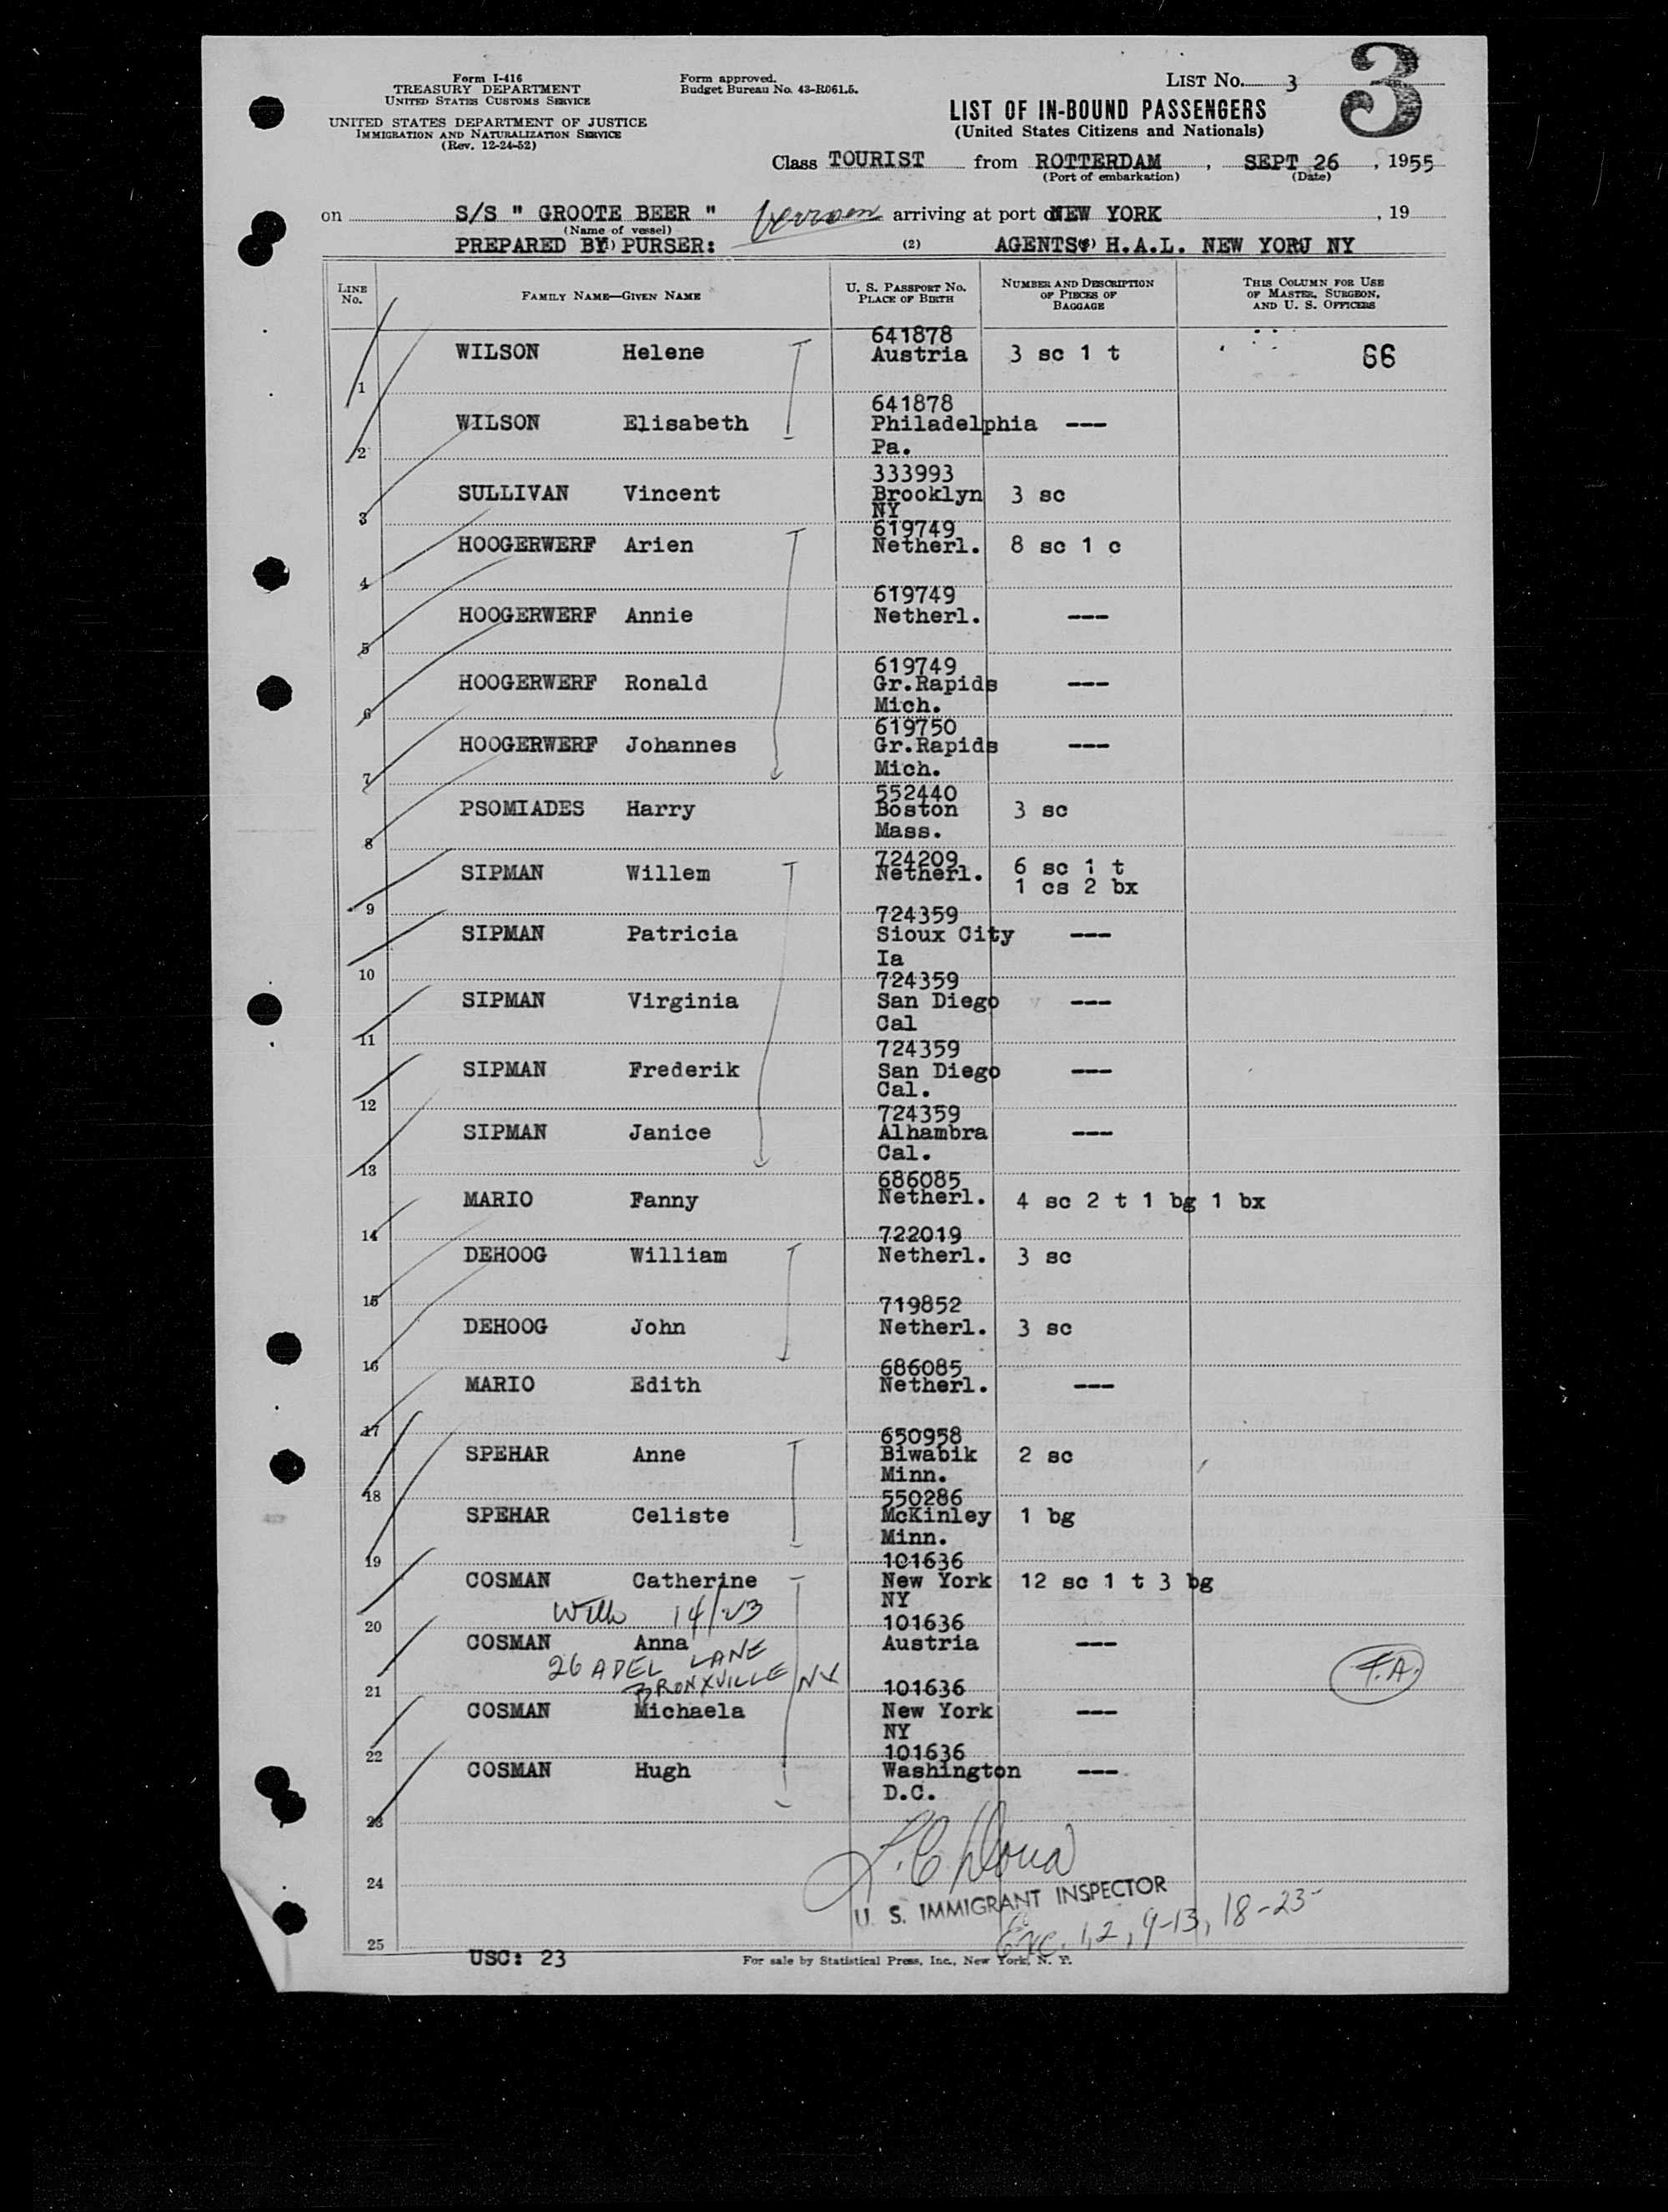 Form I-416
TREASURY DEPARTMENT
UNITED STATES CUSTOMS SERVICE
UNITED STATES DEPARTMENT OF JUSTICE
IMMIGRATION AND NATURALIZATION SERVICE
(Rev. 12-24-52)
Form approved.
Budget Bureau No. 43-R061.5.
LIST NO. 3
3
LIST OF IN-BOUND PASSENGERS
(United States Citizens and Nationals)
Class TOURIST from ROTTERDAM, SEPT 26, 1955
(Port of embarkation) (Date)
on S/S " GROOTE BEER " arriving at port of NEW YORK, 19
(Name of vessel)
PREPARED BY(1) PURSER: (2) AGENTS: H.A.L. NEW YORJ NY
LINE No. FAMILY NAME—GIVEN NAME U. S. PASSPORT NO. PLACE OF BIRTH NUMBER AND DESCRIPTION OF PIECES OF BAGGAGE THIS COLUMN FOR USE OF MASTER, SURGEON, AND U. S. OFFICERS
641878
WILSON Helene Austria 3 sc 1 t 66
1
641878
WILSON Elisabeth Philadelphia ---
2 Pa.
333993
SULLIVAN Vincent Brooklyn 3 sc
3 NY
619749
HOOGERWERF Arien Netherl. 8 sc 1 c
4
619749
HOOGERWERF Annie Netherl. ---
5
619749
HOOGERWERF Ronald Gr.Rapids ---
6 Mich.
619750
HOOGERWERF Johannes Gr.Rapids ---
7 Mich.
552440
PSOMIADES Harry Boston 3 sc
8 Mass.
724209
SIPMAN Willem Netherl. 6 sc 1 t
9 1 cs 2 bx
724359
SIPMAN Patricia Sioux City ---
10 Ia
724359
SIPMAN Virginia San Diego ---
11 Cal
724359
SIPMAN Frederik San Diego ---
12 Cal.
724359
SIPMAN Janice Alhambra ---
13 Cal.
686085
MARIO Fanny Netherl. 4 sc 2 t 1 bg 1 bx
14
722019
DEHOOG William Netherl. 3 sc
15
719852
DEHOOG John Netherl. 3 sc
16
686085
MARIO Edith Netherl. ---
17
650958
SPEHAR Anne Biwabik 2 sc
18 Minn.
550286
SPEHAR Celiste McKinley 1 bg
19 Minn.
101636
COSMAN Catherine New York 12 sc 1 t 3 bg
NY
With 14/23
20
101636
COSMAN Anna Austria ---
26 ADEL LANE
BRONXVILLE NY
F.A.
21
101636
COSMAN Michaela New York ---
22 NY
101636
COSMAN Hugh Washington ---
23 D.C.
24
U. S. IMMIGRANT INSPECTOR
Exc. 1, 2, 9-13, 18-23
25
USC: 23
For sale by Statistical Press, Inc., New York, N. Y.